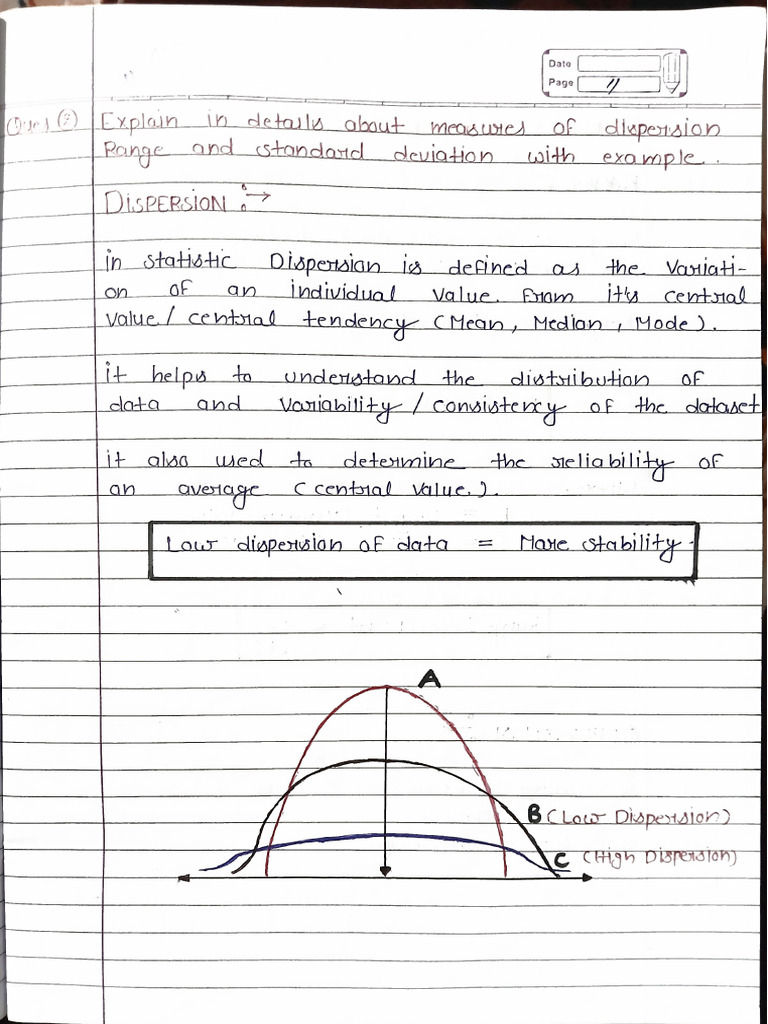 Date
Page 11
Ques (2) Explain in details about measures of dispersion
Range and standard deviation with example.
DISPERSION :→
in statistic Dispersion is defined as the Variati-
on of an individual value from it's central
value / central tendency (Mean, Median, Mode).
it helps to understand the distribution of
data and variability / consistency of the dataset
it also used to determine the reliability of
an average (central value.).
Low dispersion of data = More stability.
A
B (Low Dispersion)
C (High Dispersion)